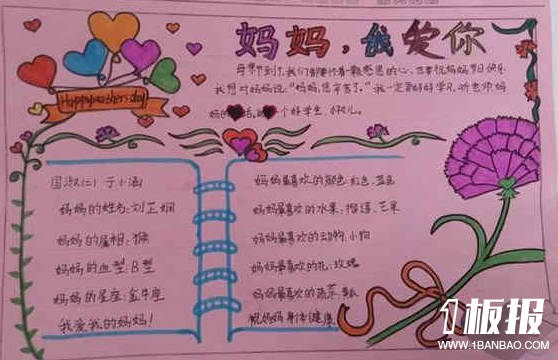 妈妈，我爱你
Happy mother's day
母亲节到了，我们都要怀着一颗感恩的心，去祝妈妈节日快乐
我想对妈妈说：“妈妈，您辛苦了。”我一定要好好学习，听老师妈
妈的话，做一个好学生、好孩儿。
国淑(二) 于小涵
妈妈的姓名：刘芝娟
妈妈的属相：猴
妈妈的血型：B型
妈妈的星座：金牛座
我爱我的妈妈！
妈妈最喜欢的颜色：红色、蓝色
妈妈最喜欢的水果：榴莲、芒果
妈妈最喜欢的动物：小狗
妈妈最喜欢的花：玫瑰
妈妈最喜欢的蔬菜：
祝妈妈身体健康
1板报
WWW.1BANBAO.COM